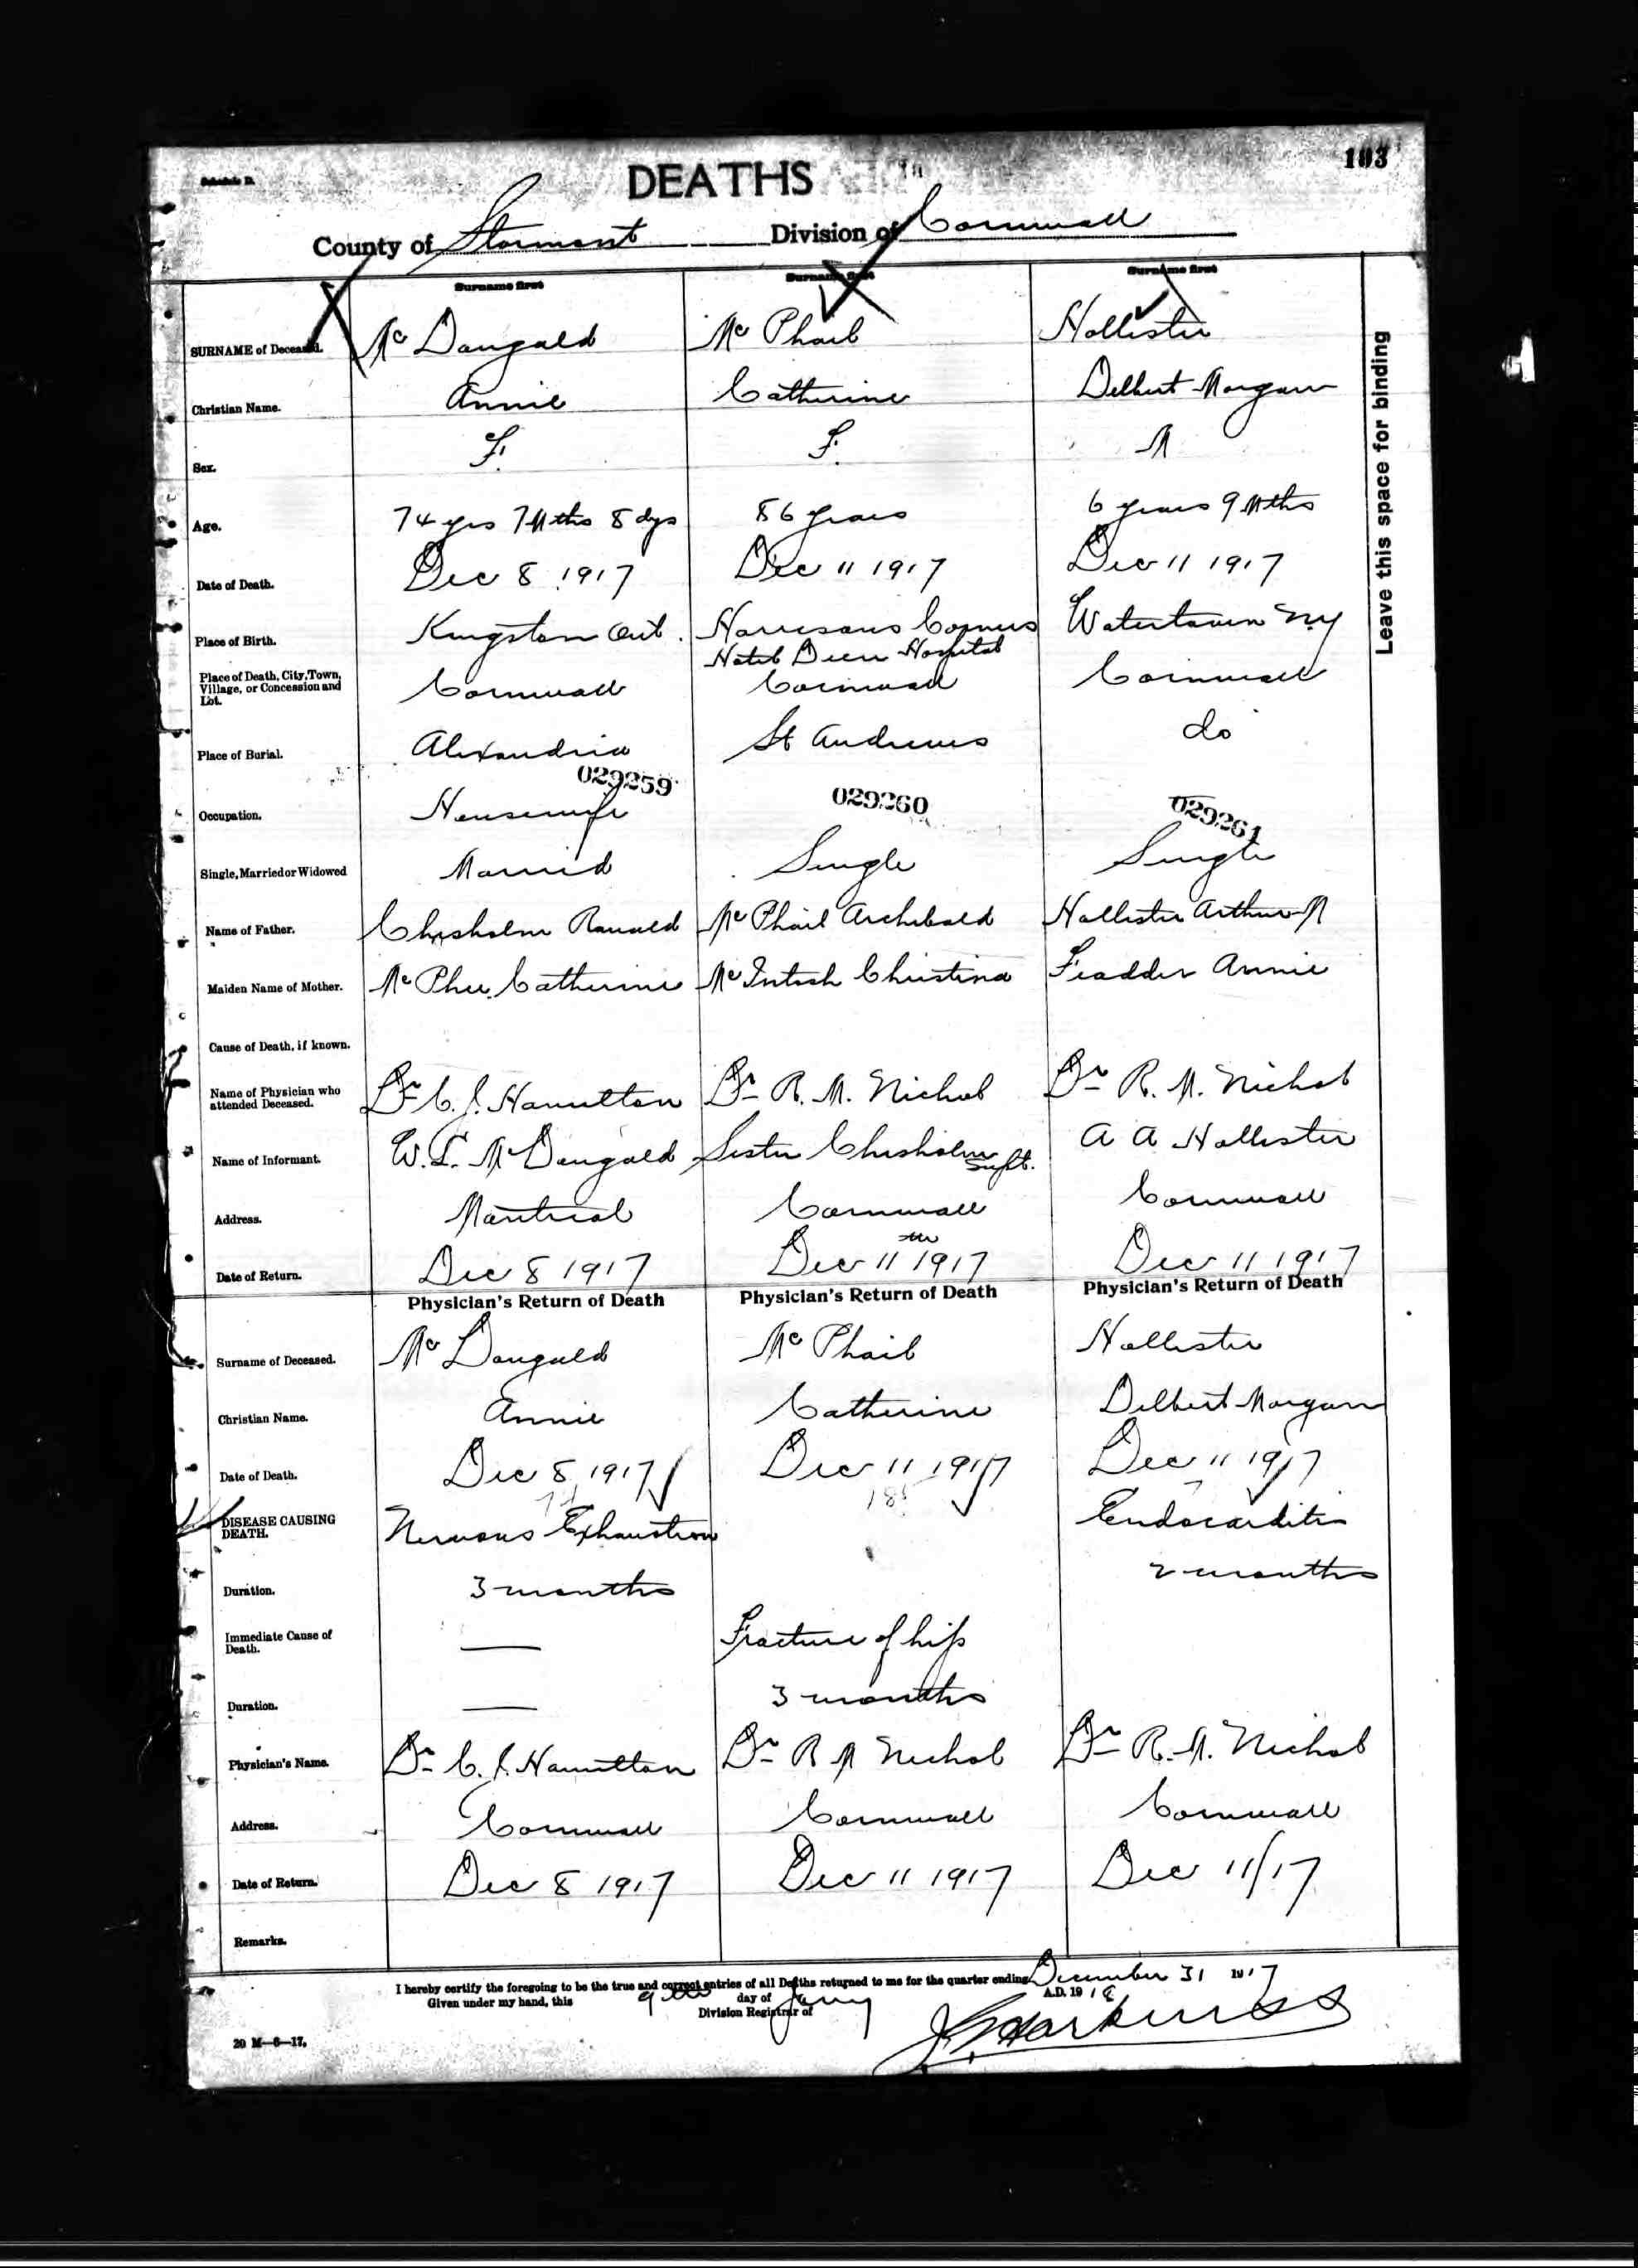 Schedule D.
DEATHS
103
County of Stormont Division of Cornwall
Surname first Surname first Surname first
SURNAME of Deceased. Mc Dougald Mc Phail Hollister
Christian Name. Annie Catherine Delbert Morgan
Sex. F. F. M
Age. 74 yrs 7 Mths 8 dys 86 years 6 years 9 Mths
Date of Death. Dec 8 1917 Dec 11 1917 Dec 11 1917
Place of Birth. Kingston Ont. Harrisons Corners Watertown N.Y
Hotel Dieu Hospital
Place of Death, City, Town, Village, or Concession and Lot. Cornwall Cornwall Cornwall
Place of Burial. Alexandria St Andrews do
029259 029260 029261
Occupation. Housewife
Single, Married or Widowed Married Single Single
Name of Father. Chisholm Ronald Mc Phail Archibald Hollister Arthur A
Maiden Name of Mother. Mc Phee Catherine Mc Intosh Christina Annie
Cause of Death, if known.
Name of Physician who attended Deceased. Dr C. J. Hamilton Dr R. M. Nichol Dr R. M. Nichol
Name of Informant. W. L. McDougald Sister Chisholm Supt. A A Hollister
Address. Montreal Cornwall Cornwall
Date of Return. Dec 8 1917 Dec 11 1917 Dec 11 1917
Physician's Return of Death Physician's Return of Death Physician's Return of Death
Surname of Deceased. Mc Dougald Mc Phail Hollister
Christian Name. Annie Catherine Delbert Morgan
Date of Death. Dec 8 1917 Dec 11 1917 Dec 11 1917
DISEASE CAUSING DEATH. Nervous Exhaustion Endocarditis
Duration. 3 months 2 months
Immediate Cause of Death. — Fracture of hip
Duration. — 3 months
Physician's Name. Dr C. J. Hamilton Dr R M Nichol Dr R. M. Nichol
Address. Cornwall Cornwall Cornwall
Date of Return. Dec 8 1917 Dec 11 1917 Dec 11/17
Remarks.
I hereby certify the foregoing to be the true and correct entries of all Deaths returned to me for the quarter ending December 31 1917
Given under my hand, this 9th day of Jany A.D. 1918
Division Registrar of
20 M—6—17.
Leave this space for binding